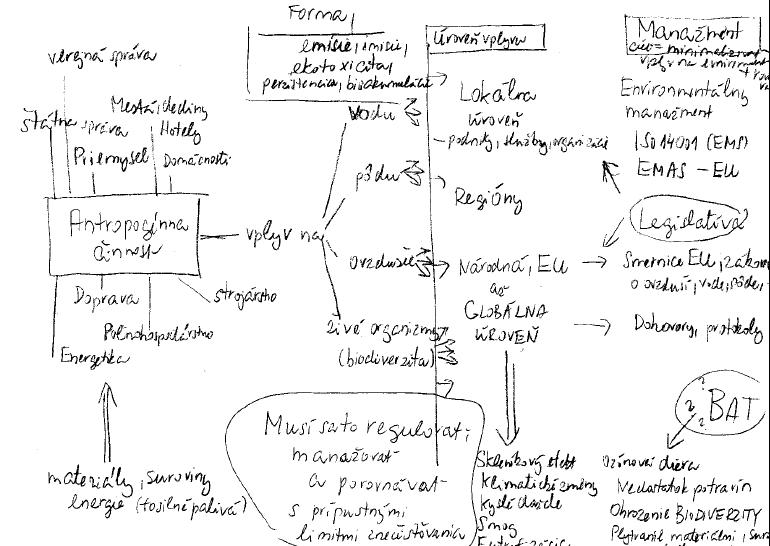 Forma
emisie, imisie,
ekotoxicita,
perzistencia, bioakumulácia
Úroveň vplyvu
Manažment
cieľ = minimalizovať
vplyv na
verejná správa
štátna správa
Mestá, dediny
Hotely
Priemysel
Domácnosti
Antropogénna
činnosť
Doprava
strojárstvo
Poľnohospodárstvo
Energetika
materiály, suroviny
energie (fosilné palivá)
vplyv na
vodu
pôdu
ovzdušie
živé organizmy
(biodiverzita)
Lokálna
úroveň
- podniky, služby, organizácie
Regióny
Národná, EU
až
GLOBÁLNA
ÚROVEŇ
Environmentálny
manažment
ISO 14001 (EMS)
EMAS - EU
Legislatíva?
Smernice EU, zákon
o ovzduší, vode, pôde,
Dohovory, protokoly
? ? ? BAT
Musí sa to regulovať,
manažovať
a porovnávať
s prípustnými
limitmi znečisťovania
Skleníkový efekt
klimatické zmeny
kyslé dažde
Smog
Ozónová diera
Nedostatok potravín
Ohrozenie BIODIVERZITY
Plytvanie materiálmi,